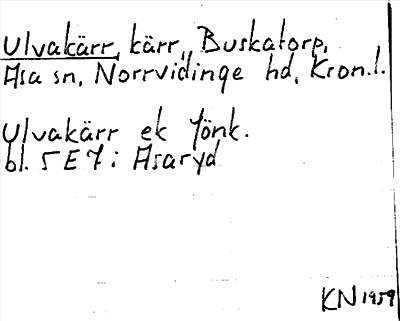 Ulvakärr, kärr, Buskatorp,
Asa sn, Norrvidinge hd, Kron.l.
Ulvakärr ek Jönk.
bl. 5 E 7 i Asaryd
KN 1959